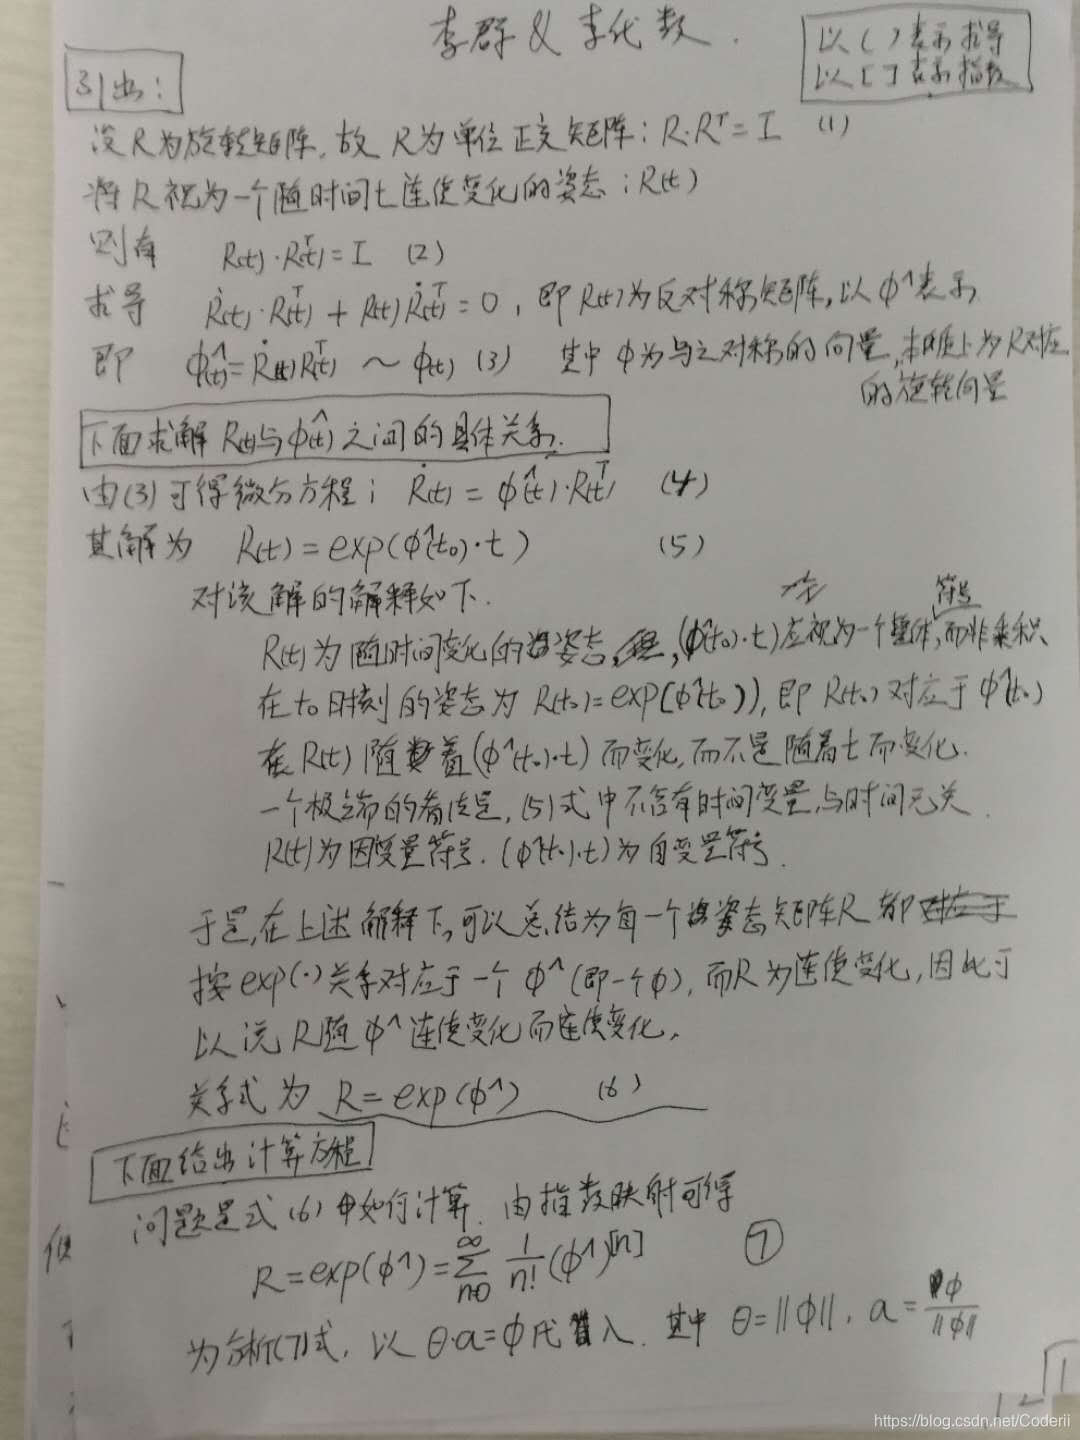 李群 & 李代数.
以( )表示求导
以[ ]表示指数
引出:
设R为旋转矩阵,故 R为单位正交矩阵: R·Rᵀ=I (1)
将R视为一个随时间t连续变化的姿态:R(t)
则有 R(t)·R(t)ᵀ=I (2)
求导 Ṙ(t)·R(t)ᵀ + R(t)Ṙ(t)ᵀ=0, 即R(t)为反对称矩阵,以ϕ^表示
即 ϕ(t)^=Ṙ(t)R(t)ᵀ ~ ϕ(t) (3) 其中ϕ为与之对称的向量,本质上为R对应
的旋转向量
下面求解 R(t)与ϕ(t)^之间的具体关系.
由(3)可得微分方程: Ṙ(t) = ϕ(t)^·R(t)ᵀ (4)
其解为 R(t)=exp(ϕ^(t₀)·t) (5)
对该解的解释如下.
R(t)为随时间变化的姿态, (ϕ^(t₀)·t)应视为一个整体符号,而非乘积
在t₀时刻的姿态为 R(t₀)=exp(ϕ^(t₀)), 即 R(t₀)对应于ϕ^(t₀)
R(t)随着(ϕ^(t₀)·t)而变化,而不是随着t而变化.
一个极端的看法是,(5)式中不含有时间变量,与时间无关.
R(t)为因变量符号. (ϕ^(t₀)·t)为自变量符号.
于是,在上述解释下,可以总结为每一个姿态矩阵R都
按exp(·)关系对应于一个ϕ^(即一个ϕ), 而R为连续变化,因此可
以说R随ϕ^连续变化而连续变化.
关系式为 R=exp(ϕ^) (6)
下面给出计算方程
问题是式(6)中如何计算. 由指数映射可得
R=exp(ϕ^)=∑_{n=0}^{∞} 1/n! (ϕ^)^[n] ⑦
为分析(7)式, 以θ·a=ϕ代入. 其中 θ=||ϕ||, a=ϕ/||ϕ||
1
https://blog.csdn.net/Coderii